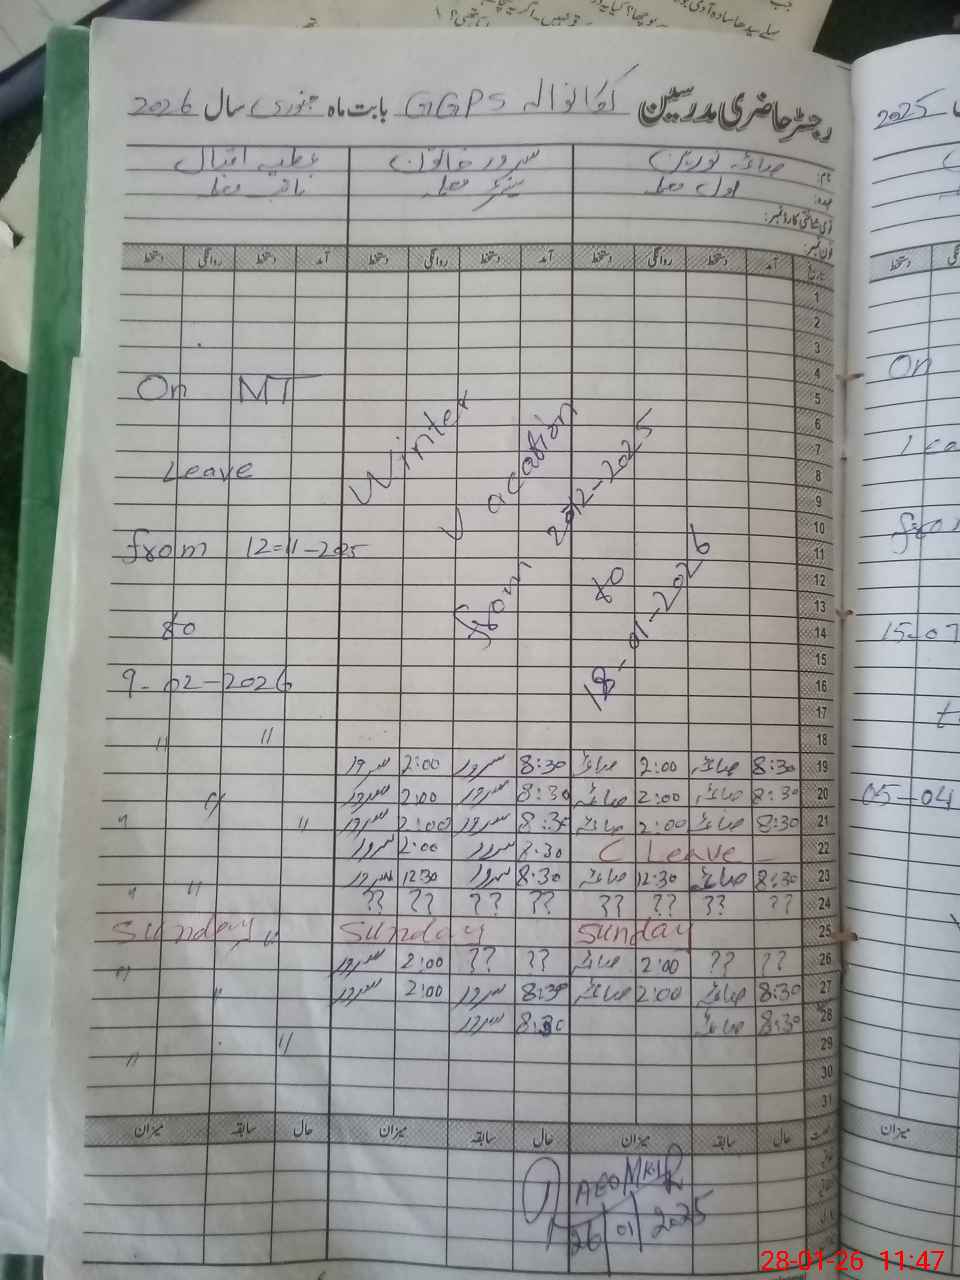 رجسٹر حاضری مدرسین GGPS اکانوالہ بابت ماہ جنوری سال 2026
2025
نام: صائمہ نورین سرور خاتون عطیہ اقبال
عہدہ: اول معلمہ سینئر معلمہ نائب معلمہ
قومی شناختی کارڈ نمبر:
فون نمبر:
تاریخ آمد دستخط روانگی دستخط آمد دستخط روانگی دستخط آمد دستخط روانگی دستخط
1
2
3
4
On MT
5
6
7
Leave
8
9
10
from 12-11-2025
11
12
13
to
14
15
9-02-2026
16
17
18
Winter
Vacation
from 20-12-2025
to
18-01-2026
19 8:30 صائمہ 2:00 صائمہ 8:30 سرور 2:00 سرور
20 8:30 صائمہ 2:00 صائمہ 8:30 سرور 2:00 سرور
21 8:30 صائمہ 2:00 صائمہ 8:30 سرور 2:00 سرور
22 C Leave 8:30 سرور 2:00 سرور
23 8:30 صائمہ 12:30 صائمہ 8:30 سرور 12:30 سرور
24 ?? ?? ?? ?? ?? ?? ?? ??
25 Sunday Sunday Sunday
26 ?? ?? 2:00 صائمہ ?? ?? 2:00 سرور
27 8:30 صائمہ 2:00 صائمہ 8:30 سرور 2:00 سرور
28 8:30 صائمہ 8:30 سرور
29
30
31
حال سابقہ میزان حال سابقہ میزان حال سابقہ میزان
AEO
26/01/2025
On
from
15-07
to
05-04
میزان
28-01-26 11:47